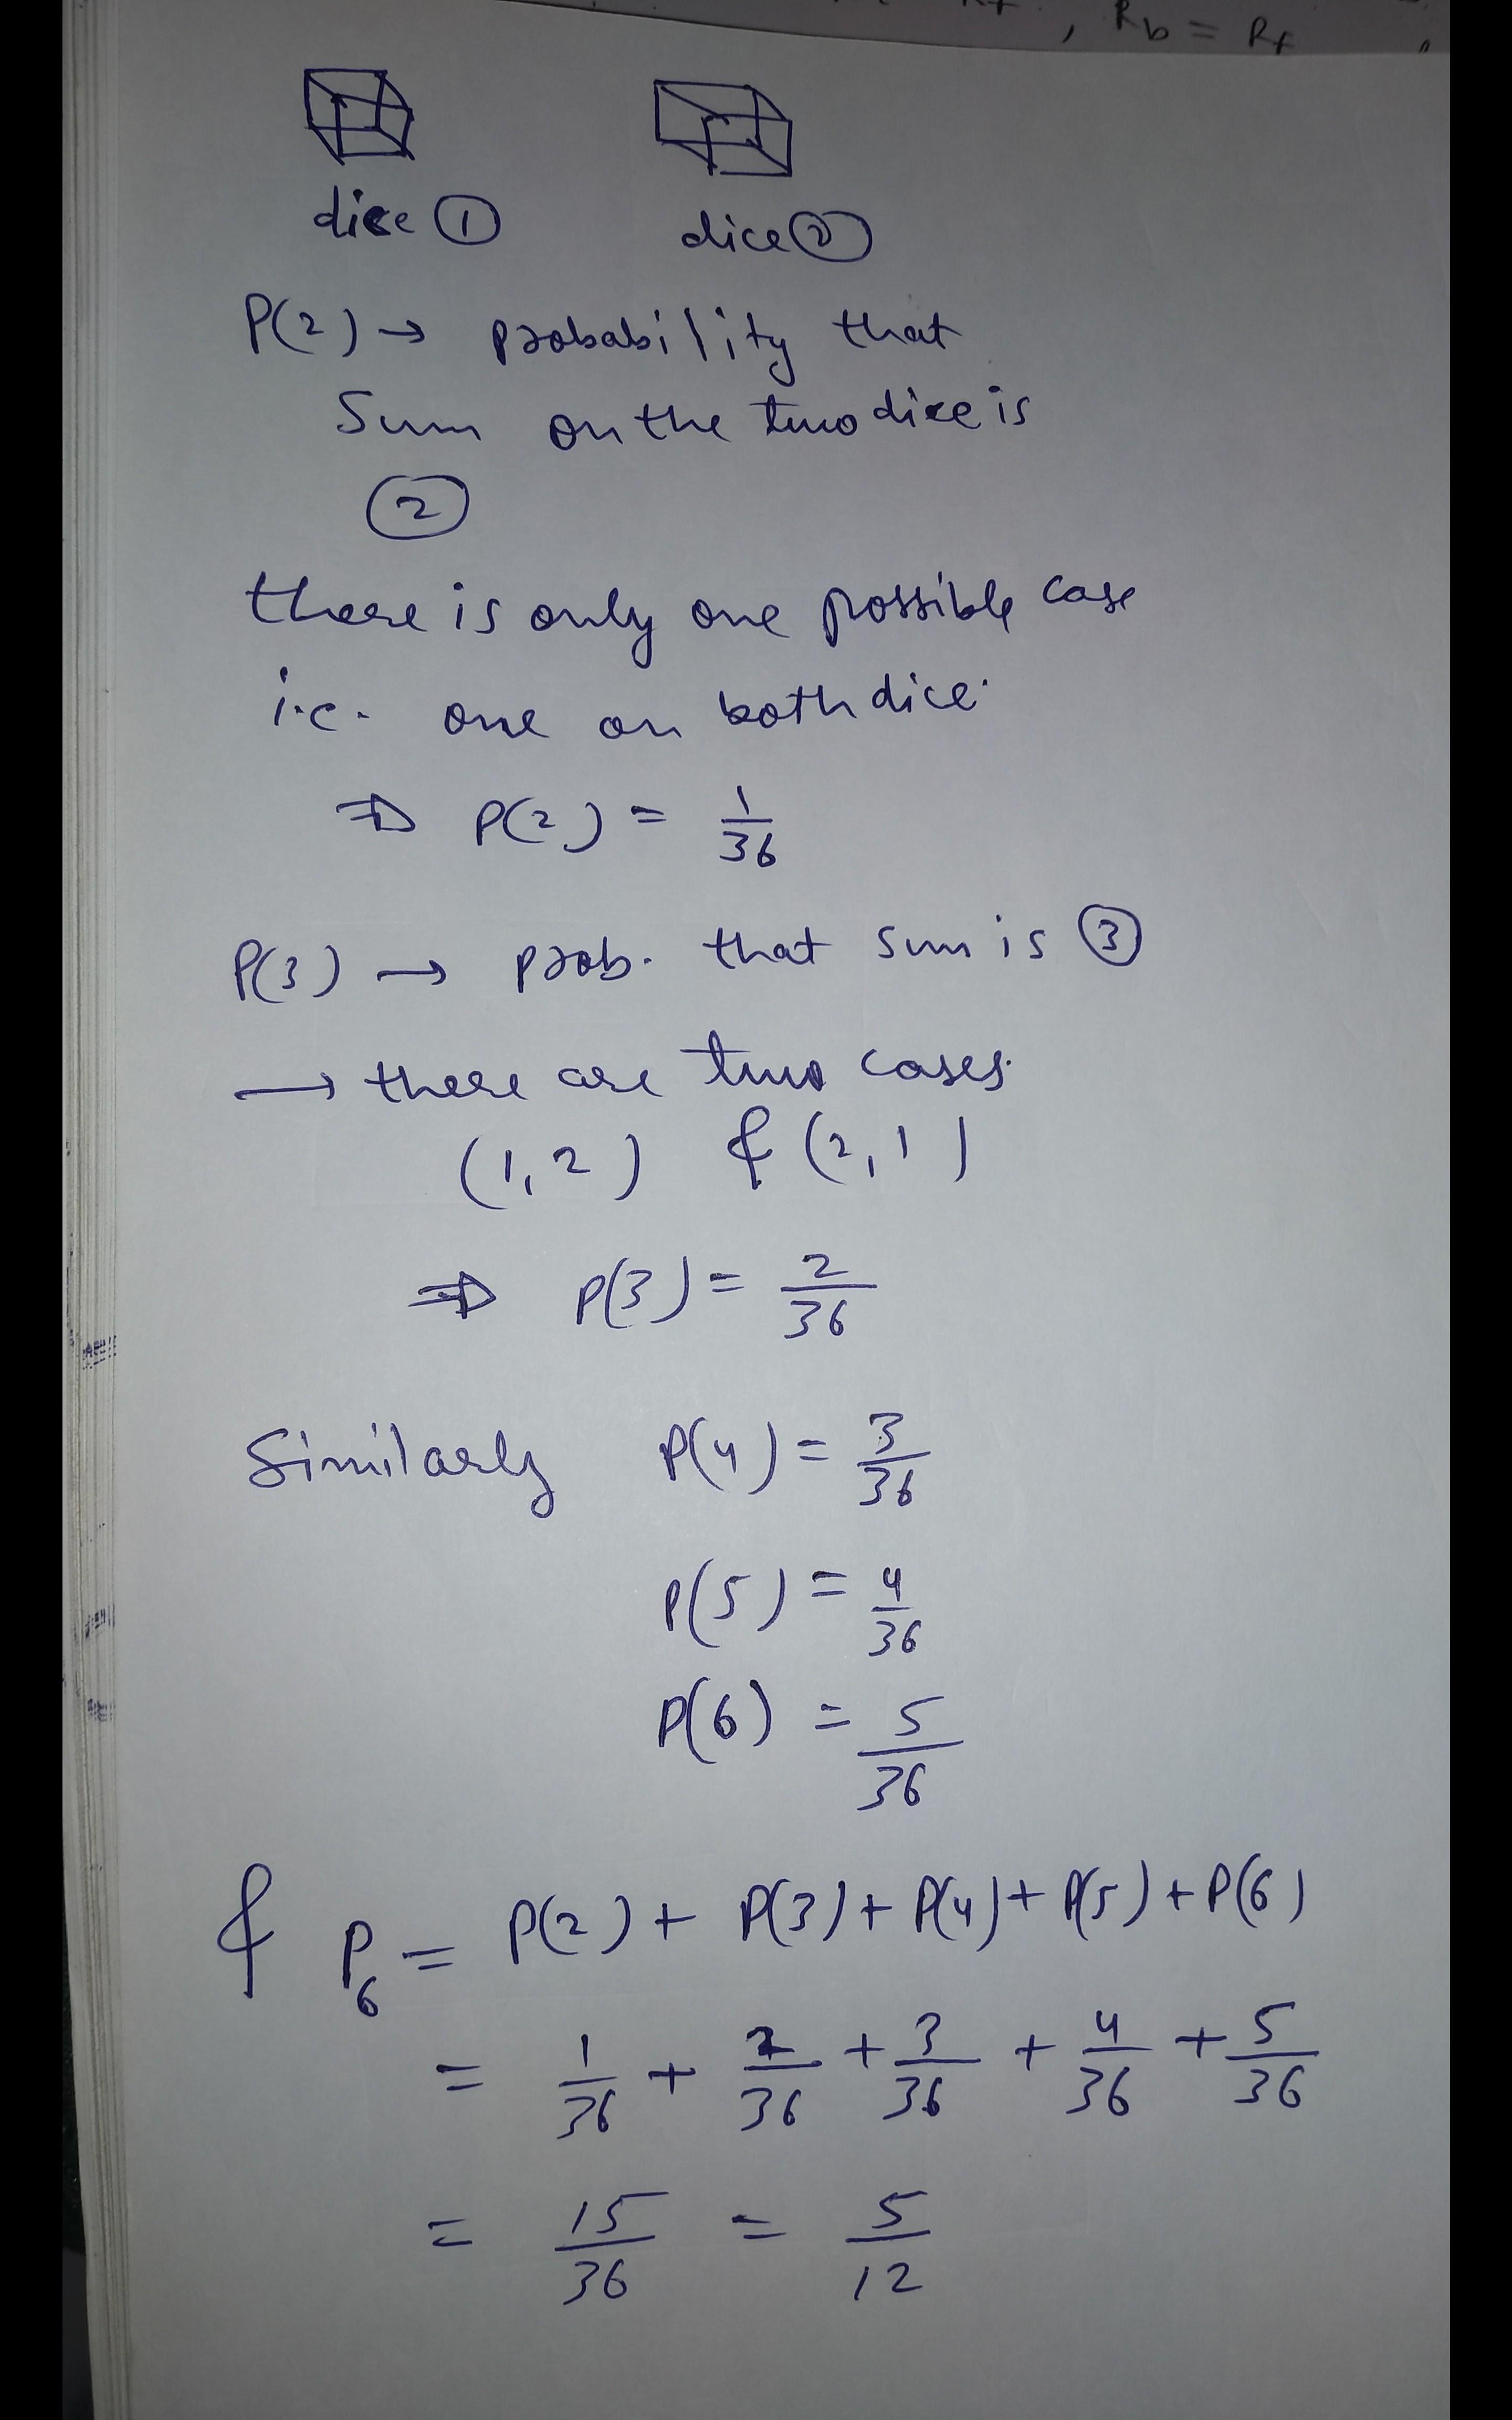 , Rb = Rf ,
dice ① dice ②
P(2) → probability that
Sum on the two dice is
②
there is only one possible case
i.e. one on both dice.
⇒ P(2) = 1/36
P(3) → prob. that sum is ③
→ there are two cases.
(1,2) & (2,1)
⇒ P(3) = 2/36
Similarly P(4) = 3/36
P(5) = 4/36
P(6) = 5/36
& P₆ = P(2) + P(3) + P(4) + P(5) + P(6)
= 1/36 + 2/36 + 3/36 + 4/36 + 5/36
= 15/36 = 5/12